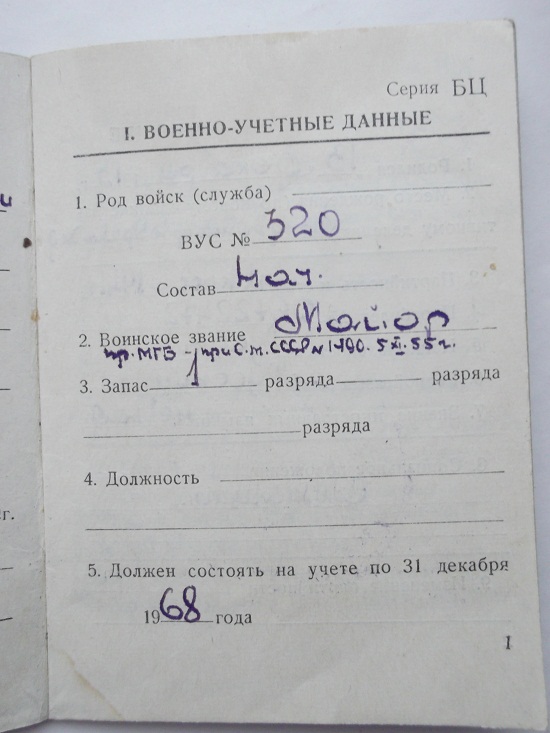 Серия БЦ
I. ВОЕННО-УЧЕТНЫЕ ДАННЫЕ
1. Род войск (служба)
ВУС № 320
Состав Нач.
2. Воинское звание Майор
пр. МГБ - при С.м. СССР № 1490. 5 XI. 55 г.
3. Запас 1 разряда разряда
разряда
4. Должность
5. Должен состоять на учете по 31 декабря
1968 года
1
г.
и